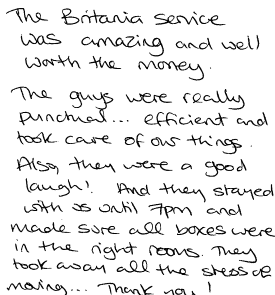 The Britania service
was amazing and well
worth the money.
The guys were really
punctual... efficient and
took care of our things.
Also, they were a good
laugh! And they stayed
with us until 7pm and
made sure all boxes were
in the right rooms. They
took away all the stress of
moving... Thank you!